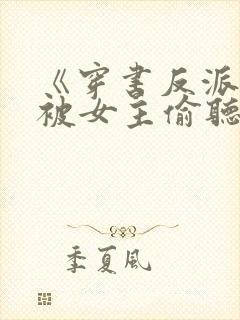 《穿书反派
被女主偷聽
季夏风